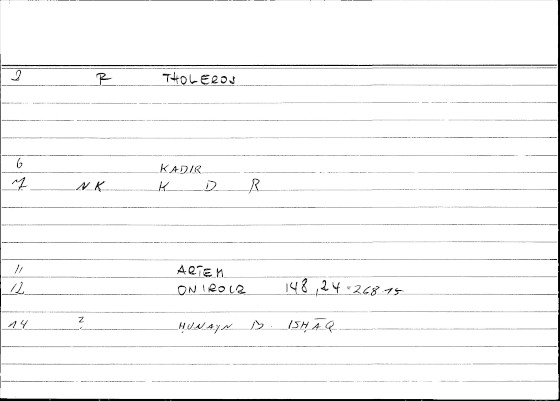 2 R THOLEROS
6 KADIR
7 NK K D R
11 ARTEM
12 ONIROCR 148,24 = 268 15
14 ? ḤUNAYN B. ISḤĀQ